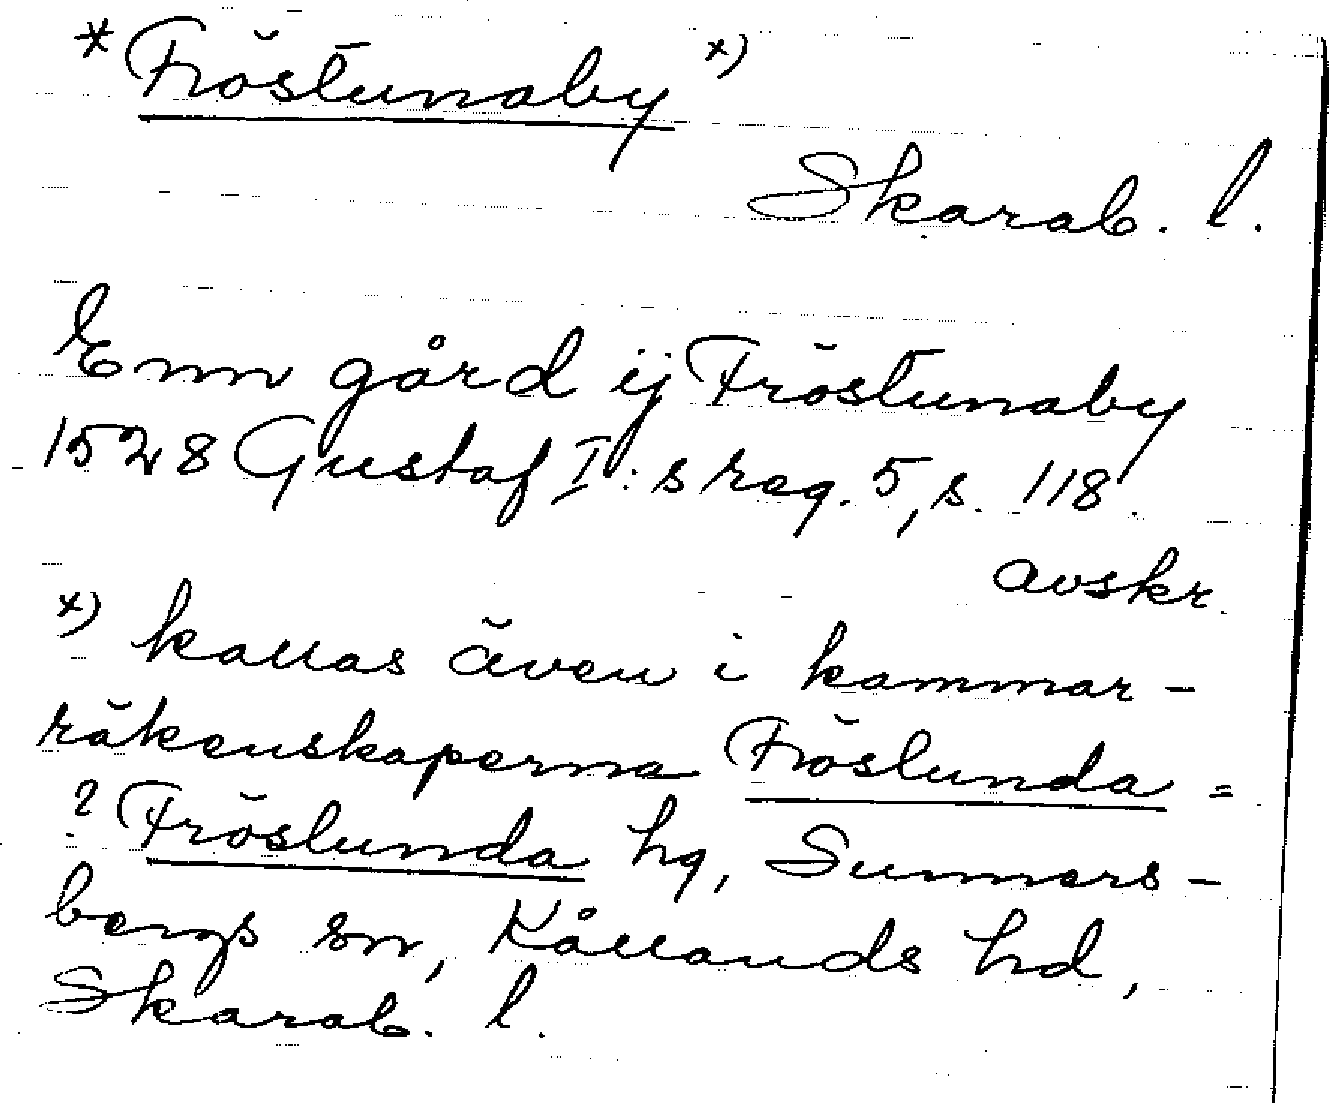 *Fröstunaby x)
Skarab. l.
Enn gård ij Fröstunaby
1528 Gustaf I:s reg. 5, s. 118.
avskr.
x) kallas även i kammar-
räkenskaperna Fröslunda =
? Fröslunda hg, Sunners-
bergs sn, Kållands hd,
Skarab. l.